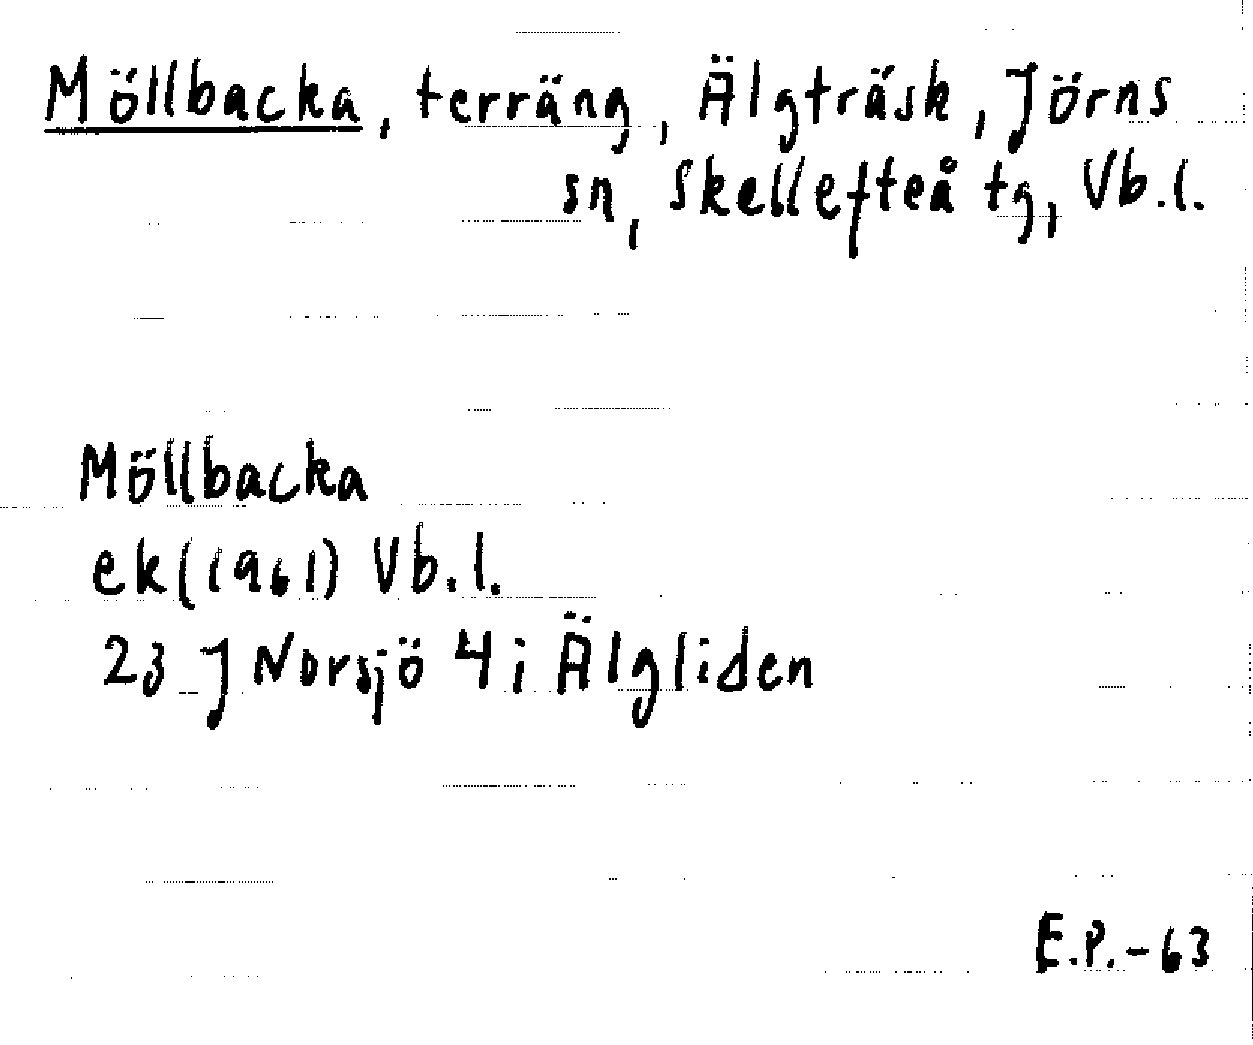 Möllbacka, terräng, Älgträsk, Jörns
sn, Skellefteå tg, Vb.l.
Möllbacka
ek(1961) Vb.l.
23 J Norsjö 4 i Älgliden
E.P.-63